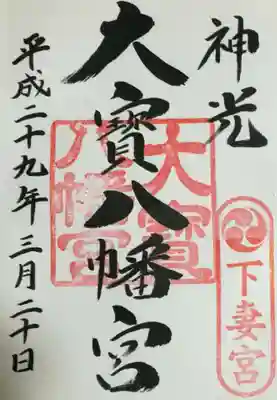 神光
大寶八幡宮
平成二十九年三月二十日
大寶
八幡宮
下妻宮